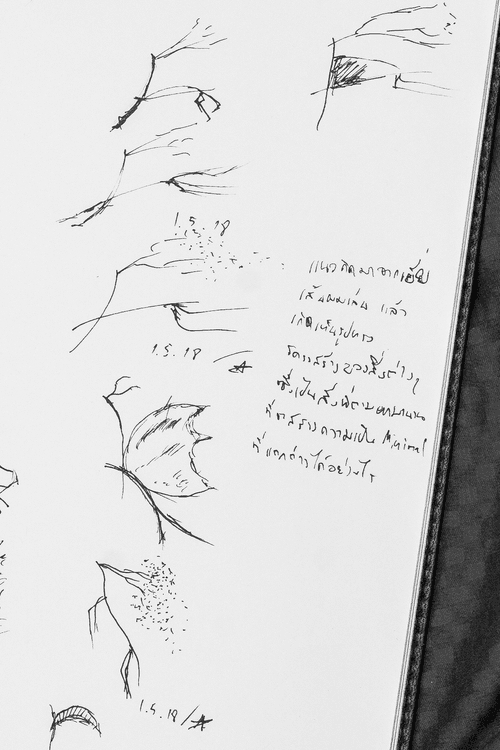 1.5.18
1.5.18
แนวคิดมาจาก
เส้นผมเล่น แล้ว
เกิดเห็นรูปทรง
โครงสร้างของสิ่งต่างๆ
ซึ่งเป็นสิ่งที่
ที่จะสร้างความเป็น Minimal
ที่แตกต่างได้อย่างไร
1.5.18/